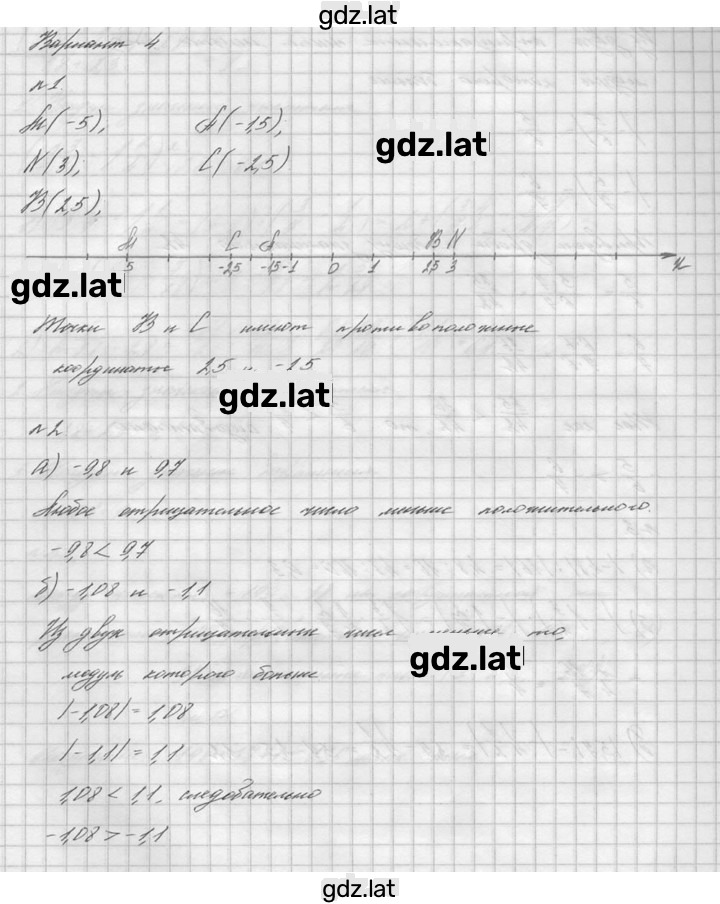 gdz.lat
Вариант 4
n1.
M(-5), A(-1,5),
N(3); C(-2,5)
B(2,5),
M C A B N
5 -2,5 -1,5 -1 0 1 2,5 3 x
gdz.lat
Точки B и C имеют противоположные
координаты 2,5 и -2,5
gdz.lat
n2
а) -9,8 и 9,7
Любое отрицательное число меньше положительного.
-9,8 < 9,7
б) -1,08 и -1,1
Из двух отрицательных чисел меньше то,
gdz.lat
модуль которого больше
|-1,08| = 1,08
|-1,1| = 1,1
1,08 < 1,1, следовательно
-1,08 > -1,1
gdz.lat